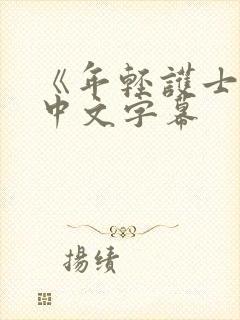 《年輕護士
中文字幕
揚績